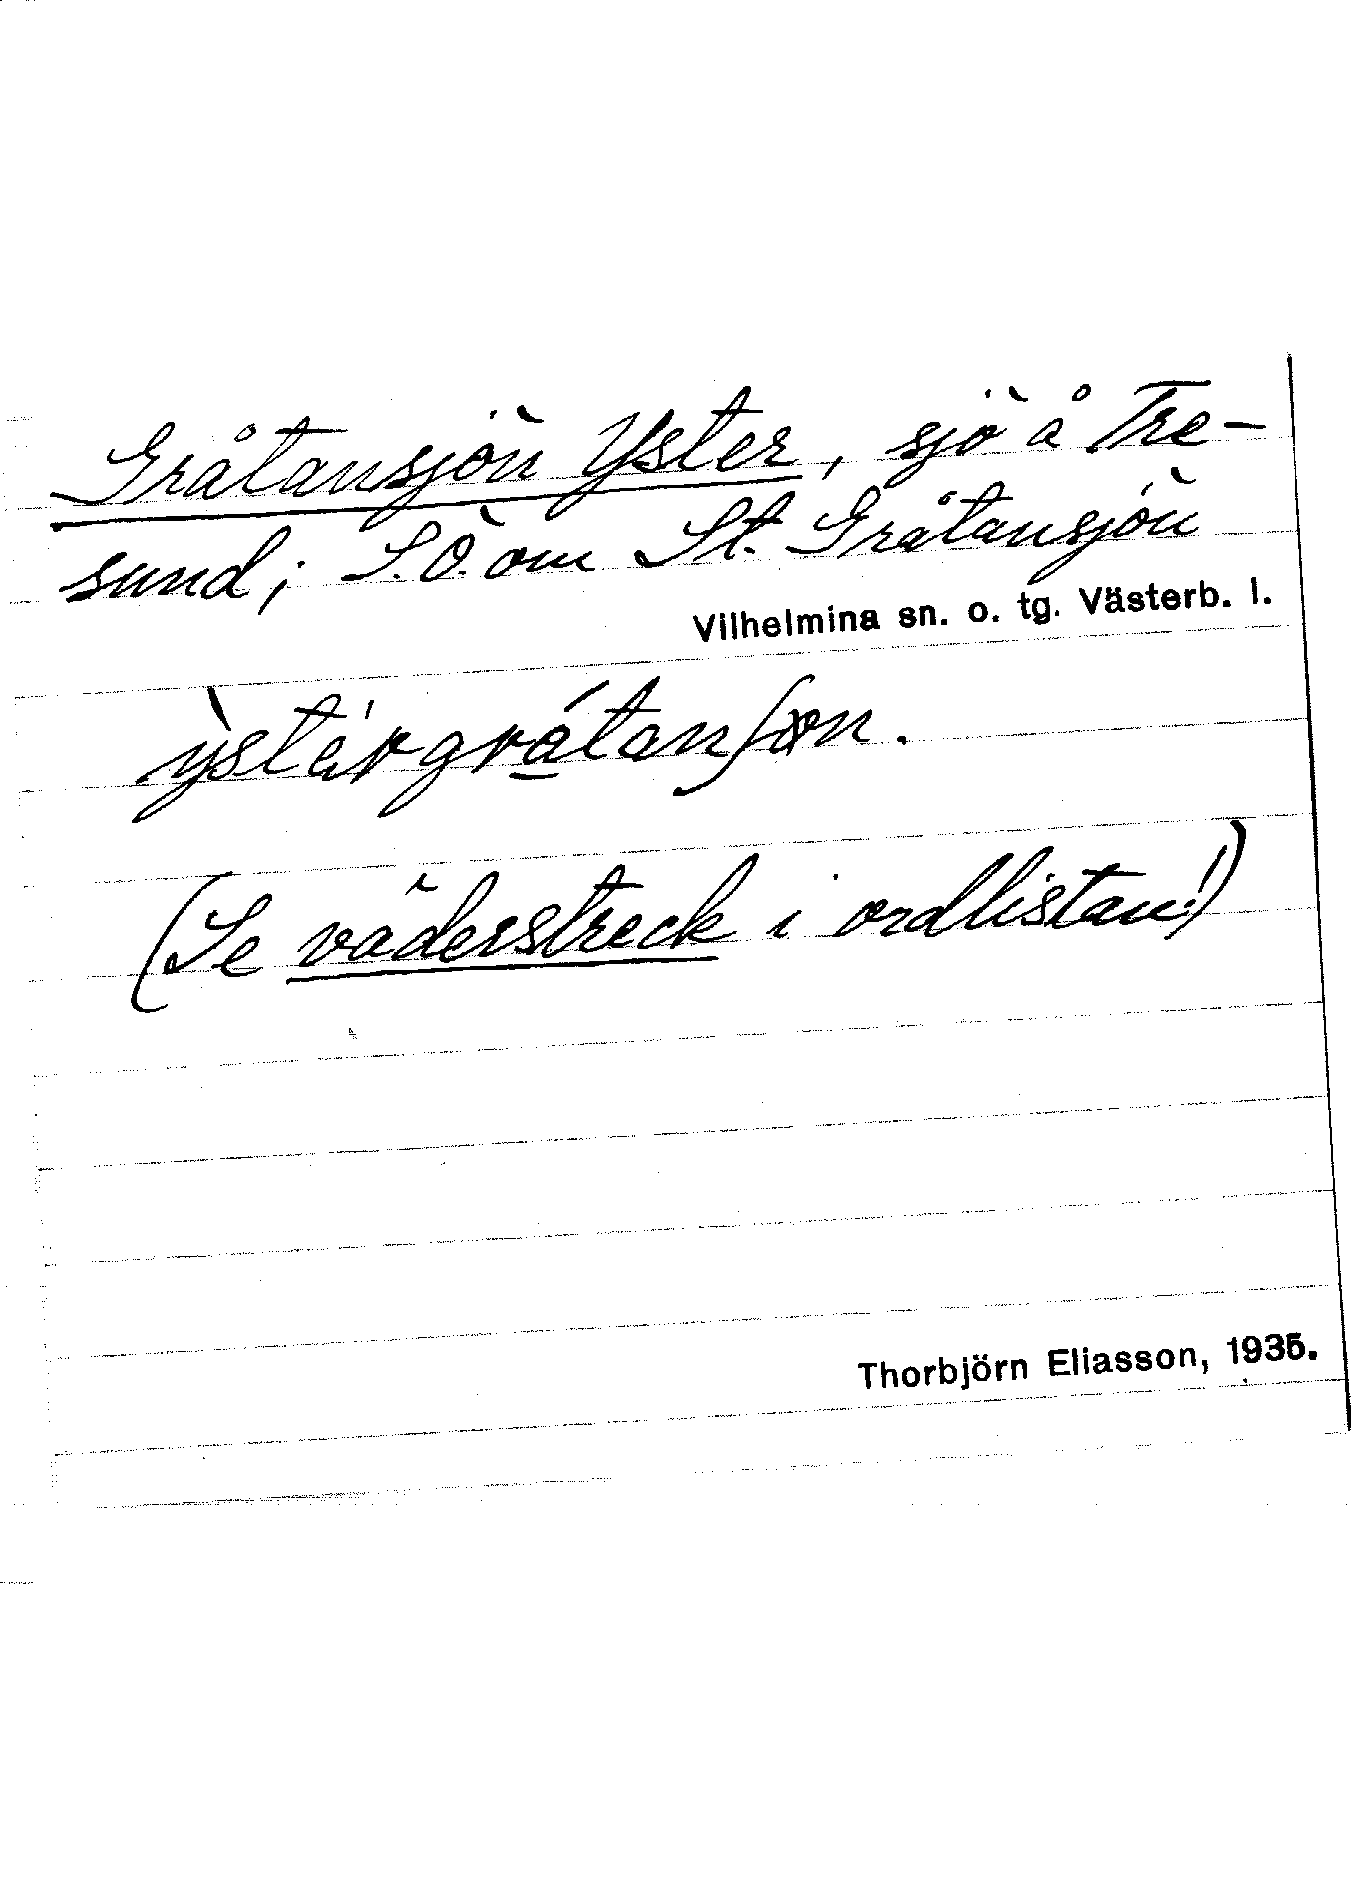 Gråtansjön Yster, sjö å Tre-
sund; S.Ö. om St. Gråtansjön
Vilhelmina sn. o. tg. Västerb. l.
(Se väderstreck i ordlistan!)
Thorbjörn Eliasson, 1935.